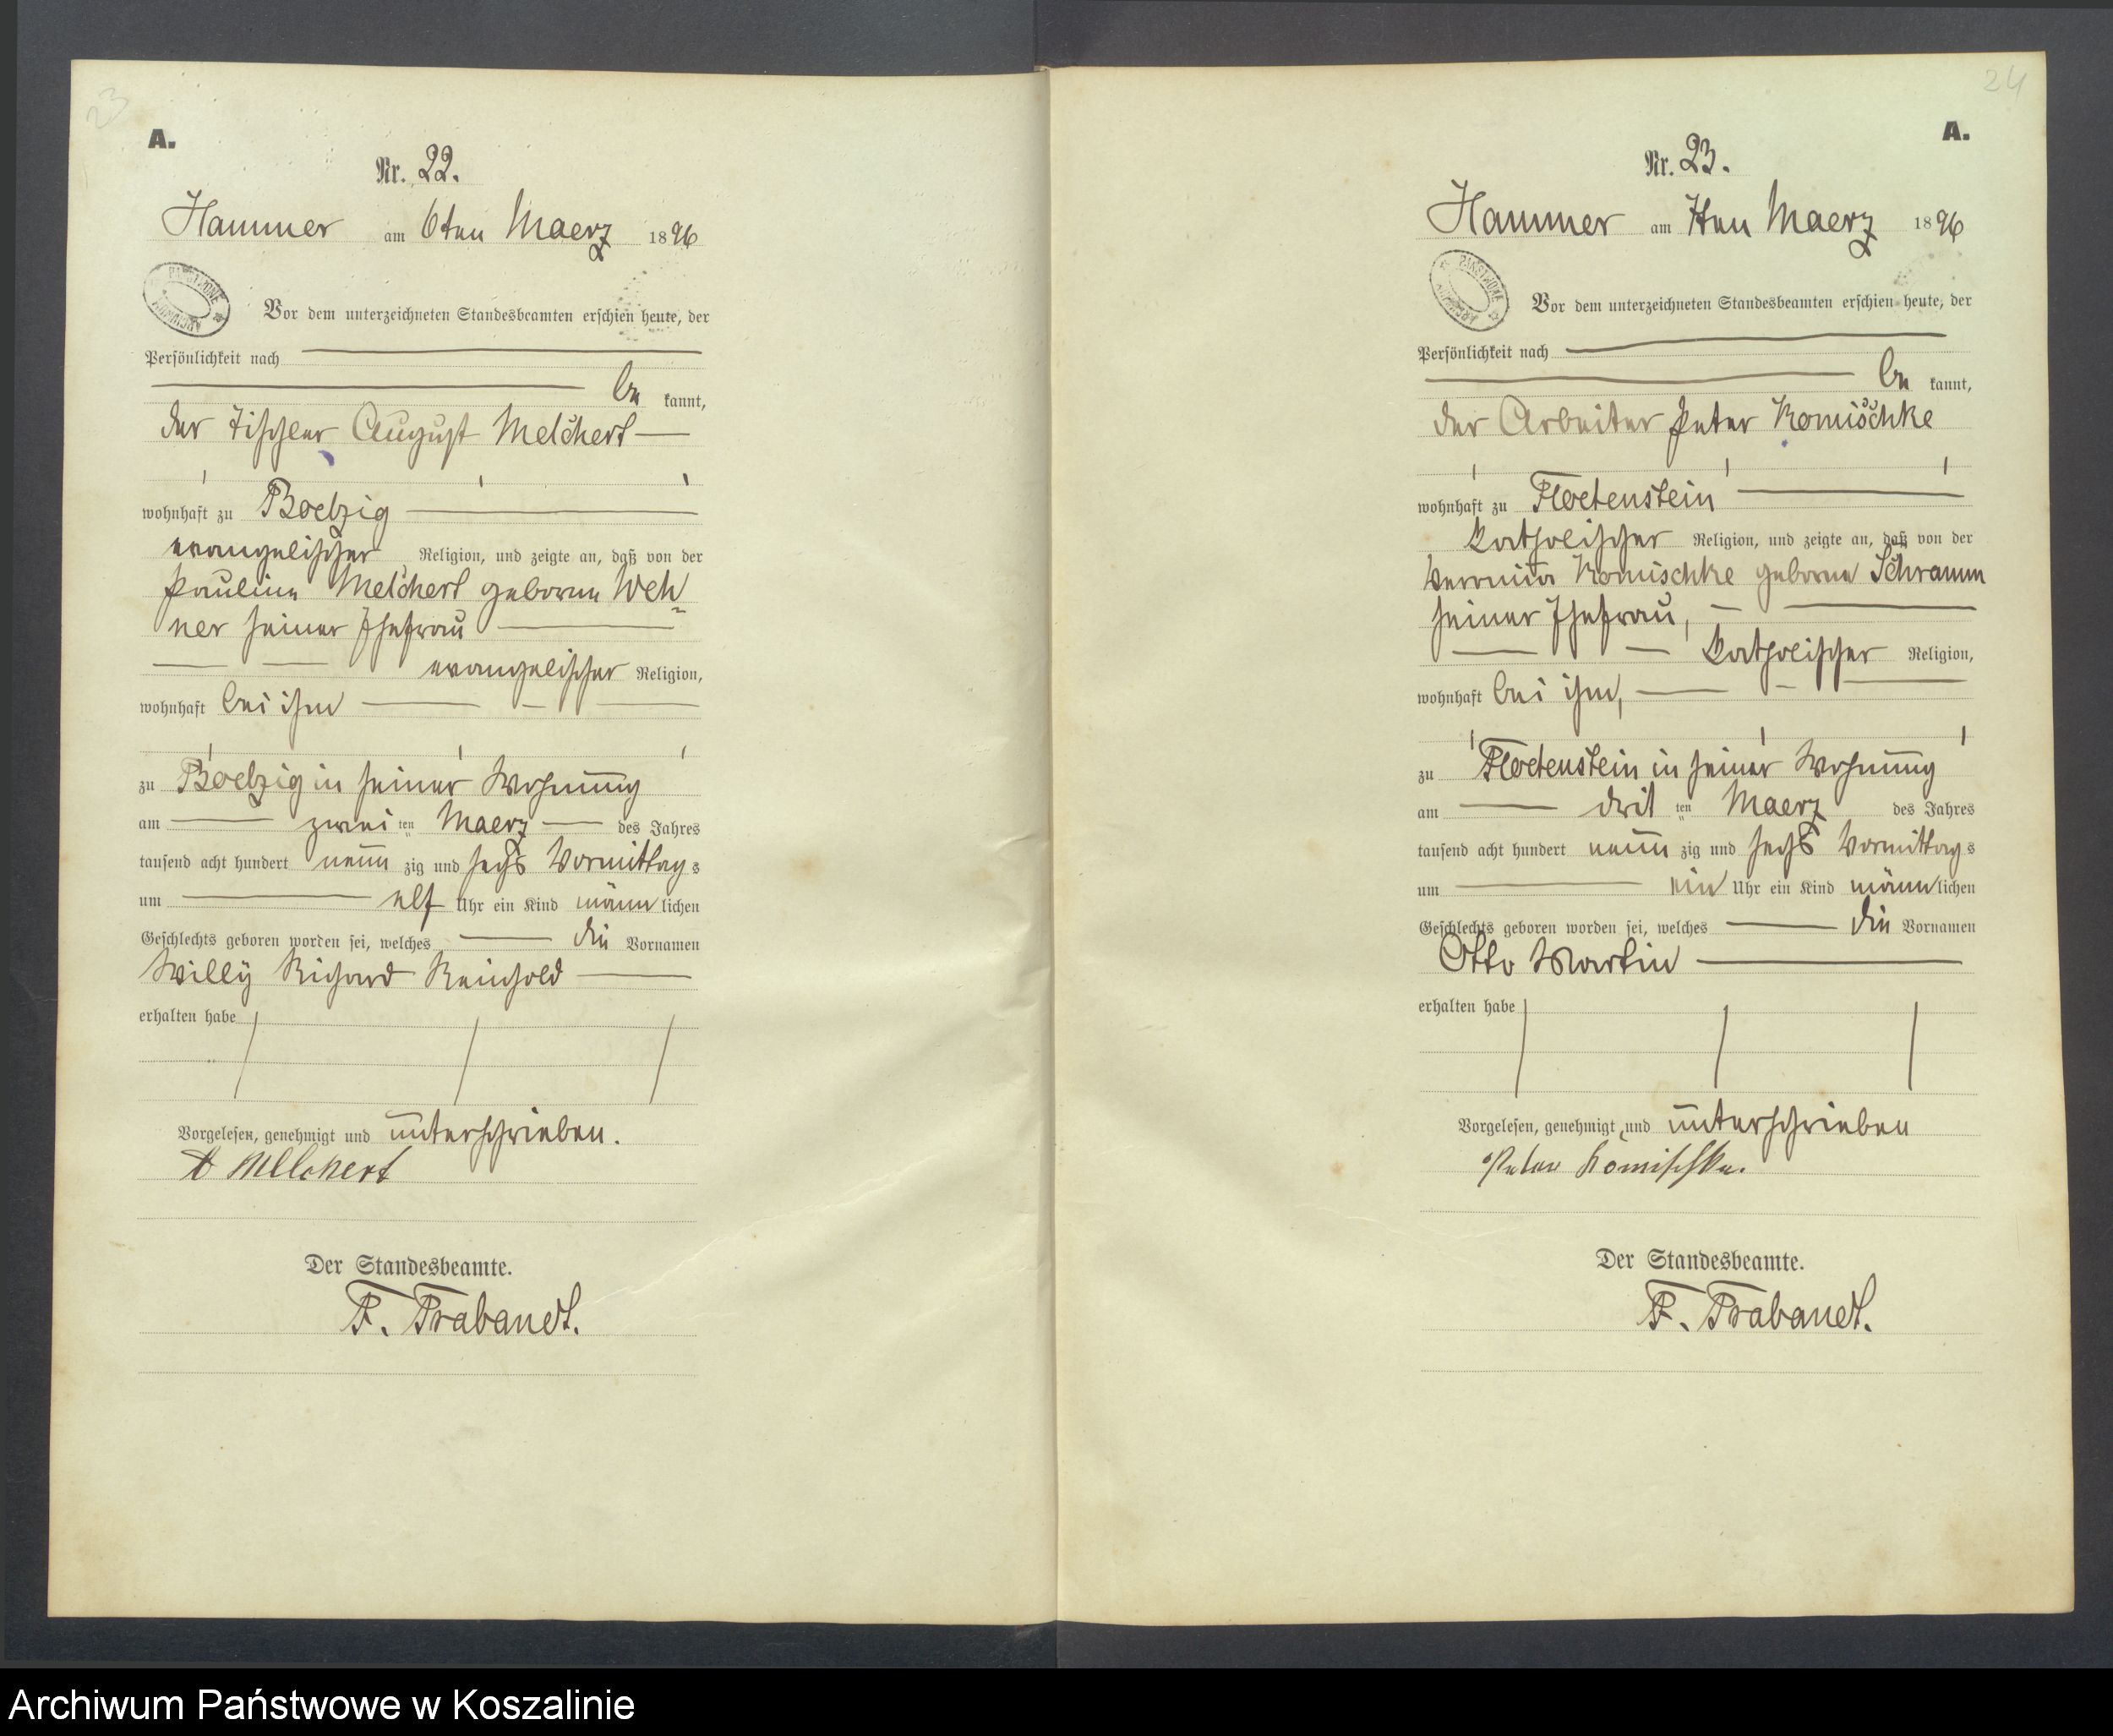 23
A.
Nr. 22.
Hammer am 6ten Maerz 1896
Vor dem unterzeichneten Standesbeamten erschien heute, der
Persönlichkeit nach
be kannt,
der Tischler August Melchert
wohnhaft zu Boelzig
evangelischer Religion, und zeigte an, daß von der
Pauline Melchert geborne Weh=
ner seiner Ehefrau
evangelischer Religion,
wohnhaft bei ihm
zu Boelzig in seiner Wohnung
am zwei ten Maerz des Jahres
tausend acht hundert neun zig und sechs Vormittag s
um elf Uhr ein Kind männ lichen
Geschlechts geboren worden sei, welches die Vornamen
Willy Richard Reinhold
erhalten habe
Vorgelesen, genehmigt und unterschrieben.
A Melchert
Der Standesbeamte.
F. Trabandt.
24
A.
Nr. 23.
Hammer am 7ten Maerz 1896
Vor dem unterzeichneten Standesbeamten erschien heute, der
Persönlichkeit nach
be kannt,
der Arbeiter Peter Komischke
wohnhaft zu Floetenstein
katholischer Religion, und zeigte an, daß von der
Veronika Komischke geborne Schramm
seiner Ehefrau,
katholischer Religion,
wohnhaft bei ihm,
zu Floetenstein in seiner Wohnung
am drit ten Maerz des Jahres
tausend acht hundert neun zig und sechs Vormittag s
um ein Uhr ein Kind männ lichen
Geschlechts geboren worden sei, welches die Vornamen
Otto Martin
erhalten habe
Vorgelesen, genehmigt und unterschrieben
Peter Komischke.
Der Standesbeamte.
F. Trabandt.
Archiwum Państwowe w Koszalinie